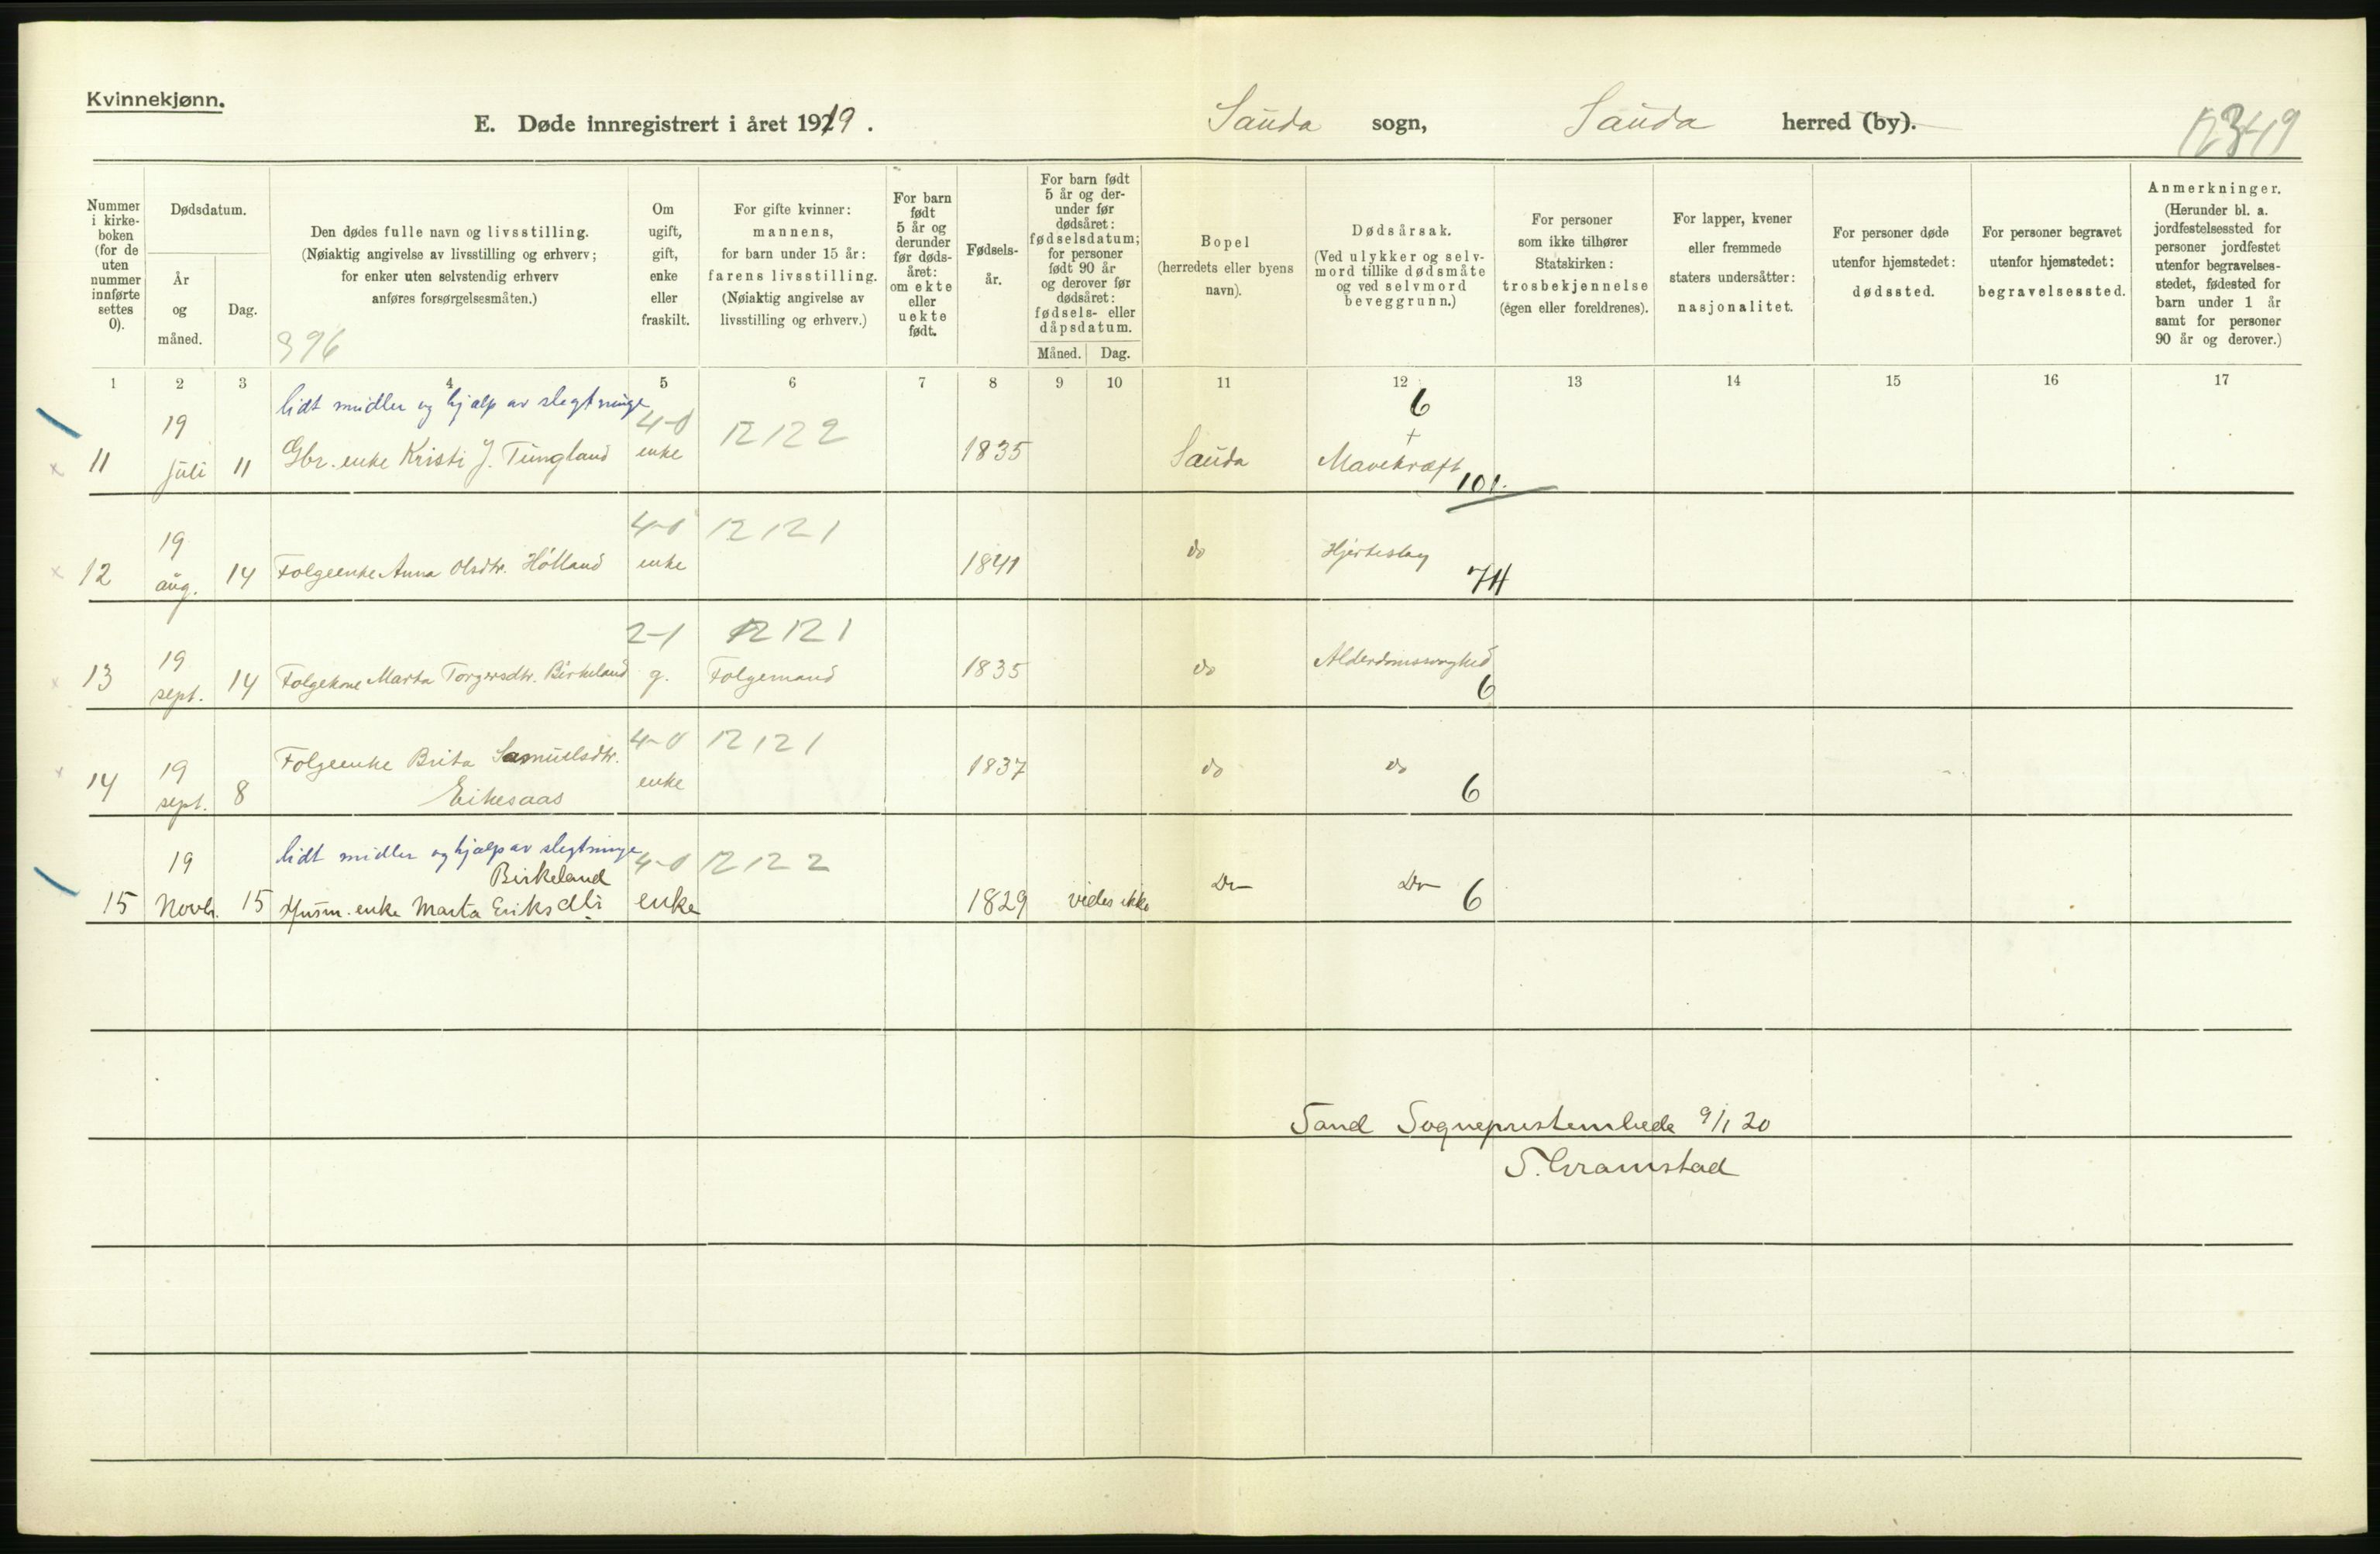 Kvinnekjønn.
E. Døde innregistrert i året 1919. Sauda sogn, Sauda herred (by).
12349
Nummer i kirke- boken (for de uten nummer innførte settes 0).
Dødsdatum.
År og måned.
Dag.
Den dødes fulle navn og livsstilling.
(Nøiaktig angivelse av livsstilling og erhverv;
for enker uten selvstendig erhverv
anføres forsørgelsesmåten.)
396
Om ugift, gift, enke eller fraskilt.
For gifte kvinner: mannens,
for barn under 15 år:
farens livsstilling.
(Nøiaktig angivelse av
livsstilling og erhverv.)
For barn født 5 år og derunder før døds- året: om ekte eller uekte født.
Fødsels- år.
For barn født 5 år og der- under før dødsåret: fødselsdatum; for personer født 90 år og derover før dødsåret: fødsels- eller dåpsdatum.
Måned. Dag.
Bopel
(herredets eller byens
navn).
Dødsårsak.
(Ved ulykker og selv-
mord tillike dødsmåte
og ved selvmord
beveggrunn.)
For personer
som ikke tilhører
Statskirken:
trosbekjennelse
(egen eller foreldrenes).
For lapper, kvener
eller fremmede
staters undersåtter:
nasjonalitet.
For personer døde
utenfor hjemstedet:
dødssted.
For personer begravet
utenfor hjemstedet:
begravelsessted.
Anmerkninger.
(Herunder bl. a.
jordfestelsessted for
personer jordfestet
utenfor begravelses-
stedet, fødested for
barn under 1 år
samt for personer
90 år og derover.)
1 2 3 4 5 6 7 8 9 10 11 12 13 14 15 16 17
lidt midler og hjælp av slegtninge
19 4-0 12 122 6 +
11 juli 11 Gbr. enke Kristi J. Tungland enke 1835 Sauda Mavekræft 101.
19 4-0 12 121
12 aug. 14 Folgeenke Anna Olsdtr. Hölland enke 1841 do Hjerteslag 74
19 2-1 12 121
13 sept. 14 Folgekone Marta Torgersdtr. Birkeland g. Folgemand 1835 do Alderdomssvaghed 6
19 Folgeenke Brita Samuelsdtr. 4-0 12 121 1837 do do
14 sept. 8 Eikesaas enke 6
lidt midler og hjælp av slegtninge
19 Birkeland 4-0 12 122
15 Novbr. 15 Husm. enke Marta Eriksdtr enke 1829 vides ikke Do Do 6
Sand Sogneprestembede 9/1 20